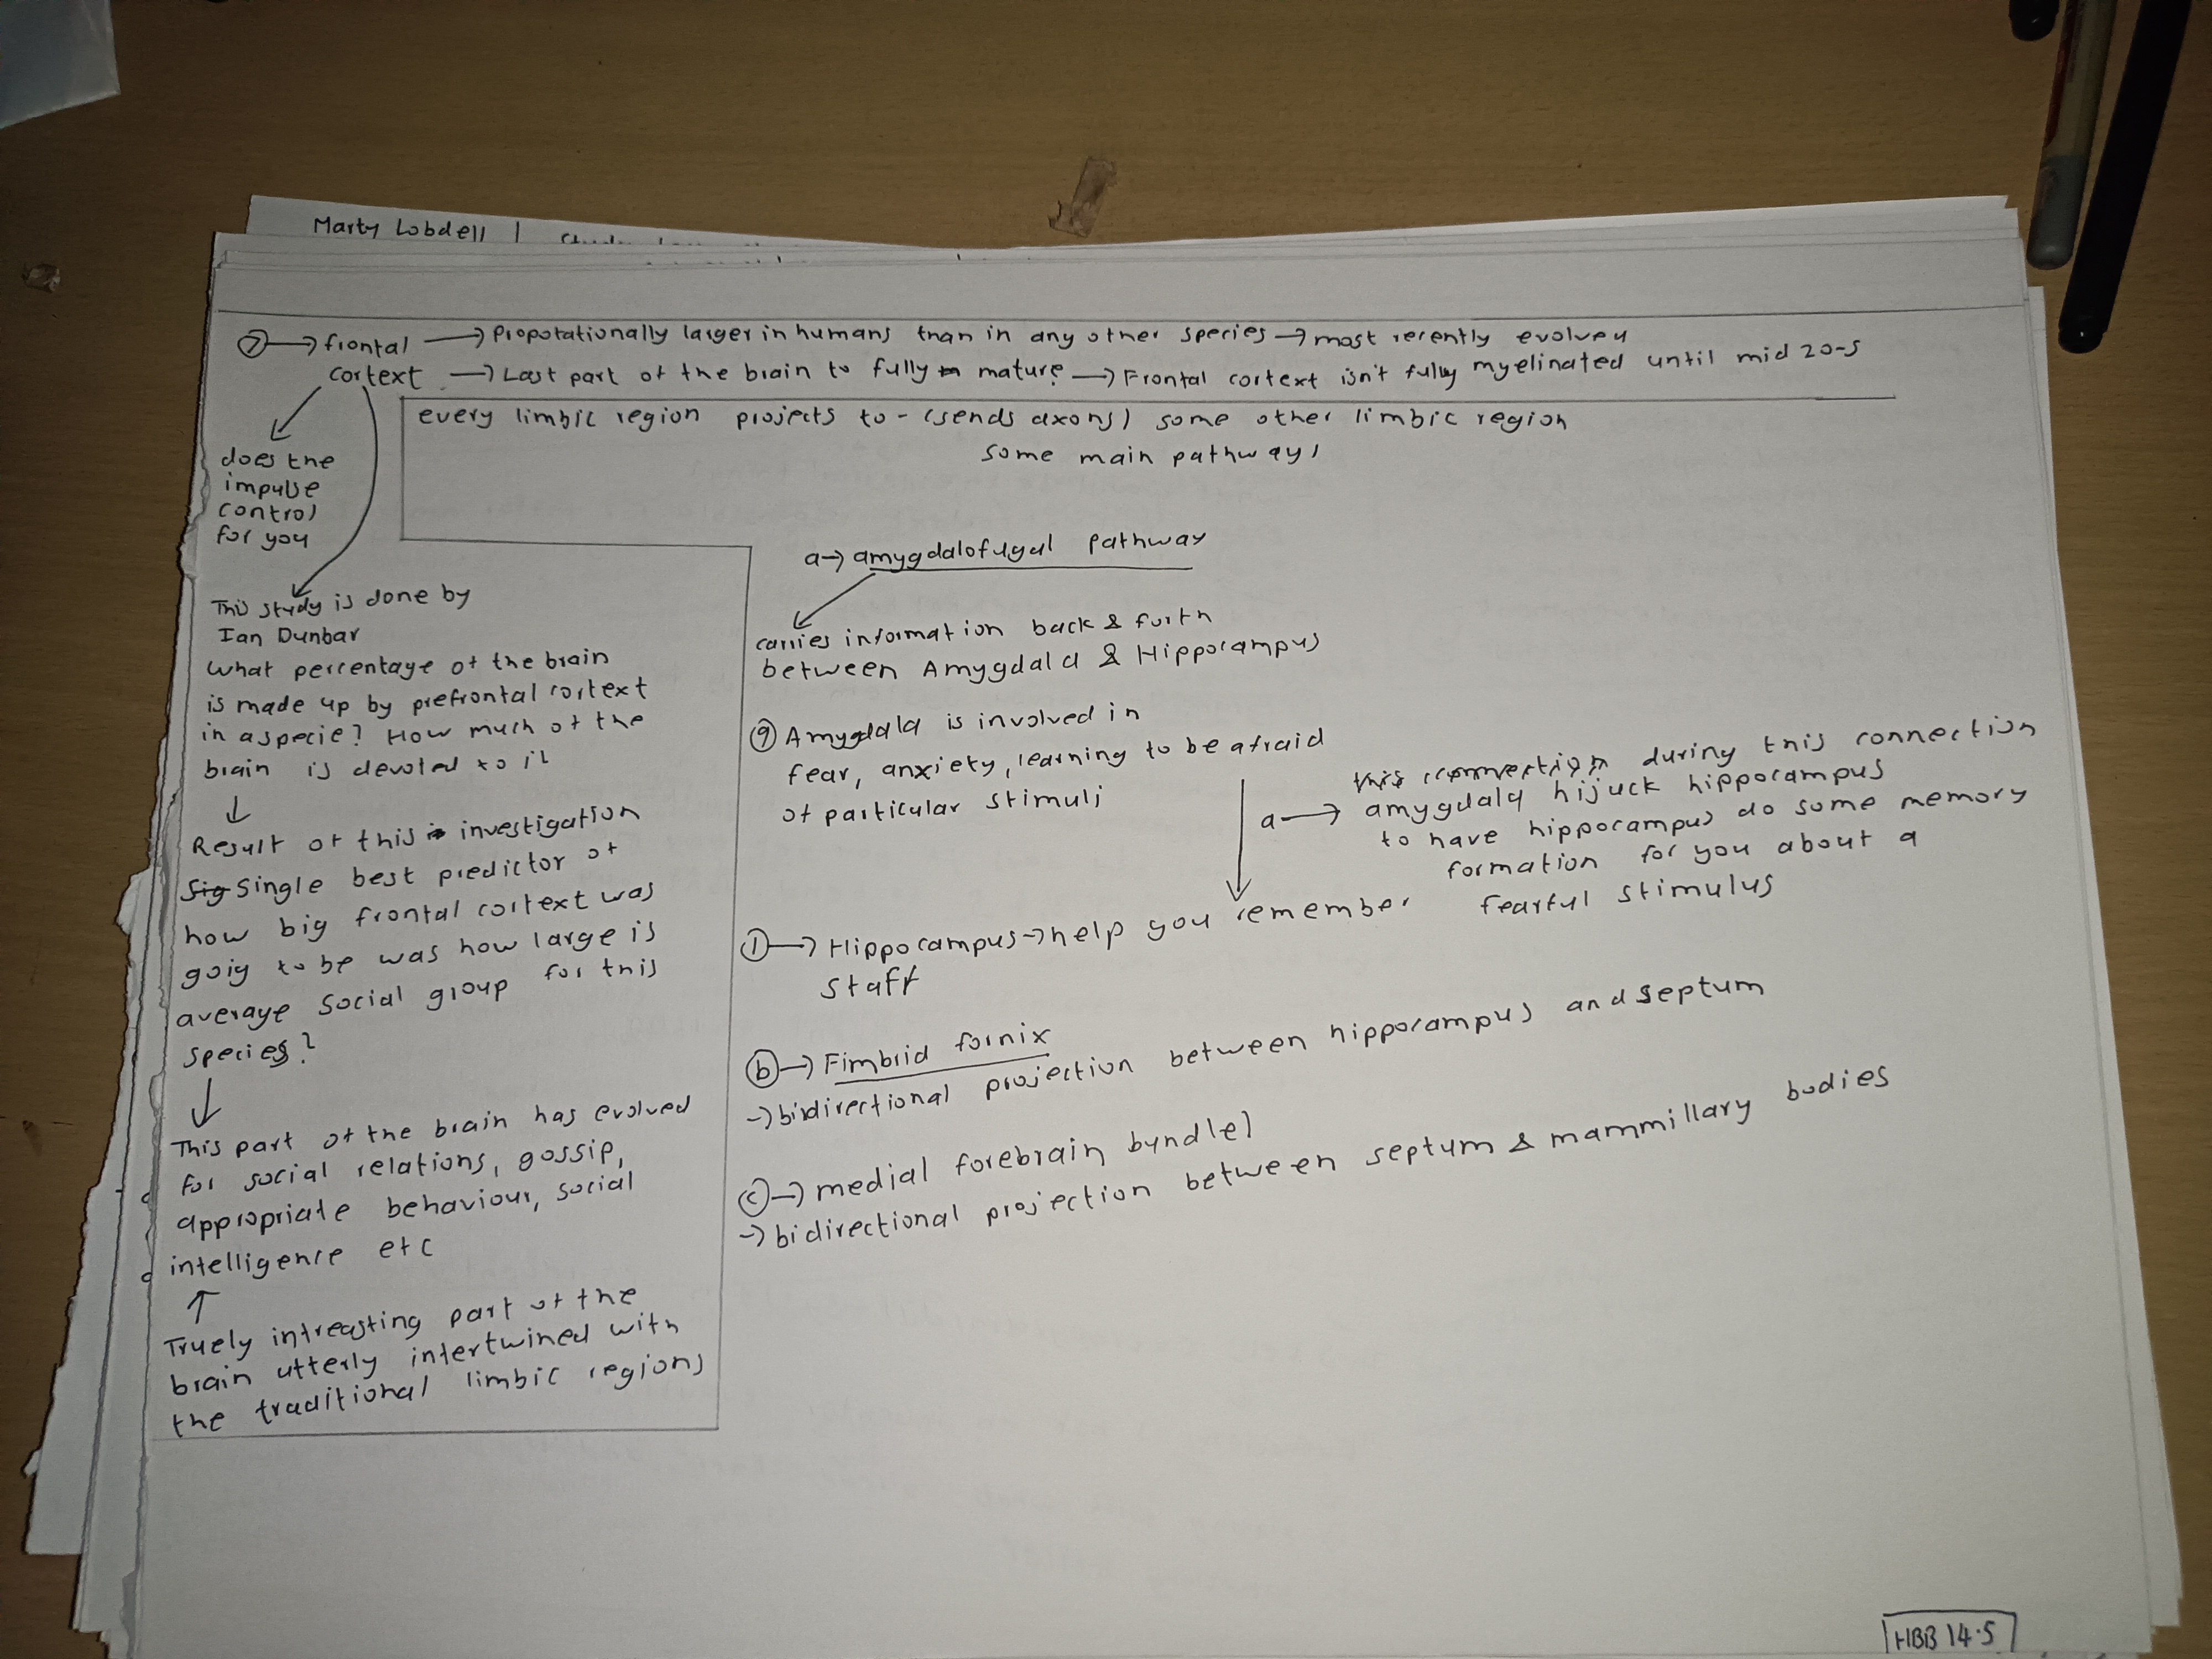 Marty Lobdell |
⑦→ frontal → Propotationally larger in humans than in any other species → most recently evolved
cortext → Last part of the brain to fully mature → Frontal cortext isn't fully myelinated until mid 20-s
every limbic region projects to - (sends axons) some other limbic region
some main pathways
does the
impulse
control
for you
This study is done by
Ian Dunbar
What percentage of the brain
is made up by prefrontal cortext
in a specie? How much of the
brain is devoted to it
↓
Result of this investigation
Sig Single best predictor of
how big frontal cortext was
goig to be was how large is
average social group for this
species?
↓
This part of the brain has evolved
for social relations, gossip,
appropriate behaviour, social
intelligence etc
↑
Truely intreasting part of the
brain utterly intertwined with
the traditional limbic regions
a→ amygdalofugal pathway
carries information back & forth
between Amygdala & Hippocampus
⑨ Amygdala is involved in
fear, anxiety, learning to be afraid
of particular stimuli
this connection during this connection
a → amygdala hijack hippocampus
to have hippocampus do some memory
formation for you about a
fearful stimulus
①→ Hippocampus → help you remember
staff
ⓑ→ Fimbrid fornix
→ bidirectional projection between hippocampus and septum
ⓒ→ medial forebrain byndlel
→ bidirectional projection between septum & mammillary bodies
HBB 14.5